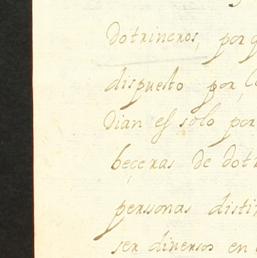 Dotrineros, por q
dispuesto por, C
Dian es solo por
beçeras de dotr
perssonas disti
ser diversos en